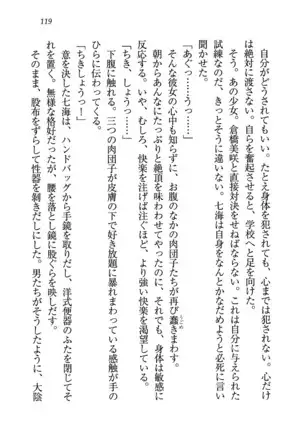 119
自分がどうされてもいい。たとえ身体を犯されても、心までは犯されない。心だけ
は絶対に渡さない。自らを奮起させると、学校へと足を向けた。
そう。あの少女。倉橋美咲と直接対決をせねばならない。これは自分に与えられた
試練なのだ、きっとそうに違いない。七海は自身をなんとかなだめようと必死に言い
聞かせた。
「あぐっ……うっ……」
そんな彼女の心中も知らずに、お腹のなかの肉団子たちが再び蠢きまわす。
朝からあんなにたっぷりと絶頂を味わわせられたのに、それでも、身体は敏感に
反応する。いや、むしろ、快楽を注げば注ぐほど、より強い快楽を渇望している。
「ちき、しょうっ……」
下腹に触れる。三つの肉団子が皮膚の下で好き放題に暴れまわっている感触が手の
ひらに伝わってくる。
「ちきしょうっ！」
意を決した七海は、ハンドバッグから手鏡を取りだし、洋式便器のふたを閉じてそ
れを置く。無様な格好だったが、腰を落とし鏡に股ぐらを映す。
そのまま、股布をずらして性器を剥きだしにした。男たちがそうしたように、大陰